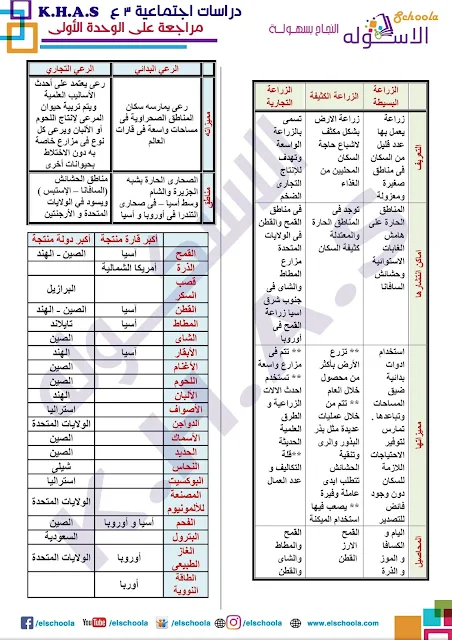 Eschoola
الاسكوله
النجاح بسهولة
دراسات اجتماعية ٣ ع K.H.A.S
مراجعة على الوحدة الأولى
الزراعة البسيطة
الزراعة الكثيفة
الزراعة التجارية
التعريف
زراعة يعمل بها عدد قليل من السكان فى مناطق صغيرة ومعزولة
زراعة الارض بشكل مكثف لاشباع حاجة السكان المحليين من الغذاء
تسمى بالزراعة الواسعة وتهدف للإنتاج التجارى الضخم
اماكن انتشارها
المناطق الحارة على هامش الغابات الاستوائية وحشائش السافانا
توجد فى المناطق الحارة والمعتدلة كثيفة السكان
فى مناطق القمح والقطن فى الولايات المتحدة مزارع المطاط والشاى فى جنوب شرق اسيا زراعة القمح فى أوروبا
مميزاتها
استخدام ادوات بدائية ضيق المساحات وتباعدها . تمارس لتوفير الاحتياجات اللازمة للسكان دون وجود فائض للتصدير
** تزرع الأرض بأكثر من محصول خلال العام ** تتم من خلال عمليات عديدة مثل بذر البذور والرى وتنقية الحشائش تتطلب ايدى عاملة وفيرة ** يصعب فيها استخدام الميكنة
** تتم فى مزارع واسعة ** تستخدم احدث الالات الزراعية و الطرق العلمية الحديثة ** قلة التكاليف و عدد العمال
المحاصيل
اليام و الكسافا و الموز و الذرة
القمح الارز القطن
القمح والمطاط والشاى والقطن
الرعي البدائي
الرعي التجاري
مميزاته
رعى يمارسه سكان المناطق الصحراوية فى مساحات واسعة فى قارات العالم
رعى يعتمد على أحدث الأساليب العلمية
ويتم تربية حيوان المرعى لإنتاج اللحوم أو الألبان ويرعى كل نوع فى مزارع خاصة به دون الاختلاط بحيوانات أخرى
مناطق
الصحارى الحارة بشبه الجزيرة والشام
وسط أسيا – فى صحارى التندرا فى أوروبا و أسيا
مناطق الحشائش (السافانا – الإستبس )
ويسود في الولايات المتحدة و الأرجنتين
أكبر قارة منتجة
أكبر دولة منتجة
القمح أسيا الصين - الهند
الذرة أمريكا الشمالية
قصب السكر البرازيل
القطن أسيا الصين - الهند
المطاط أسيا تايلاند
الشاى الصين
الأبقار أسيا الهند
الأغنام الصين
اللحوم الصين
الألبان الهند
الأصواف استراليا
الدواجن الولايات المتحدة
الأسماك الصين
الحديد الصين
النحاس شيلى
البوكسيت استراليا
المصنعة للألومنيوم الولايات المتحدة
الفحم أسيا و أوروبا الصين
البترول السعودية
الغاز الطبيعي أوروبا الولايات المتحدة
الطاقة النووية أوربا
/elschoola
YouTube /elschoola
/elschoola
/elschoola
www.elschoola.com